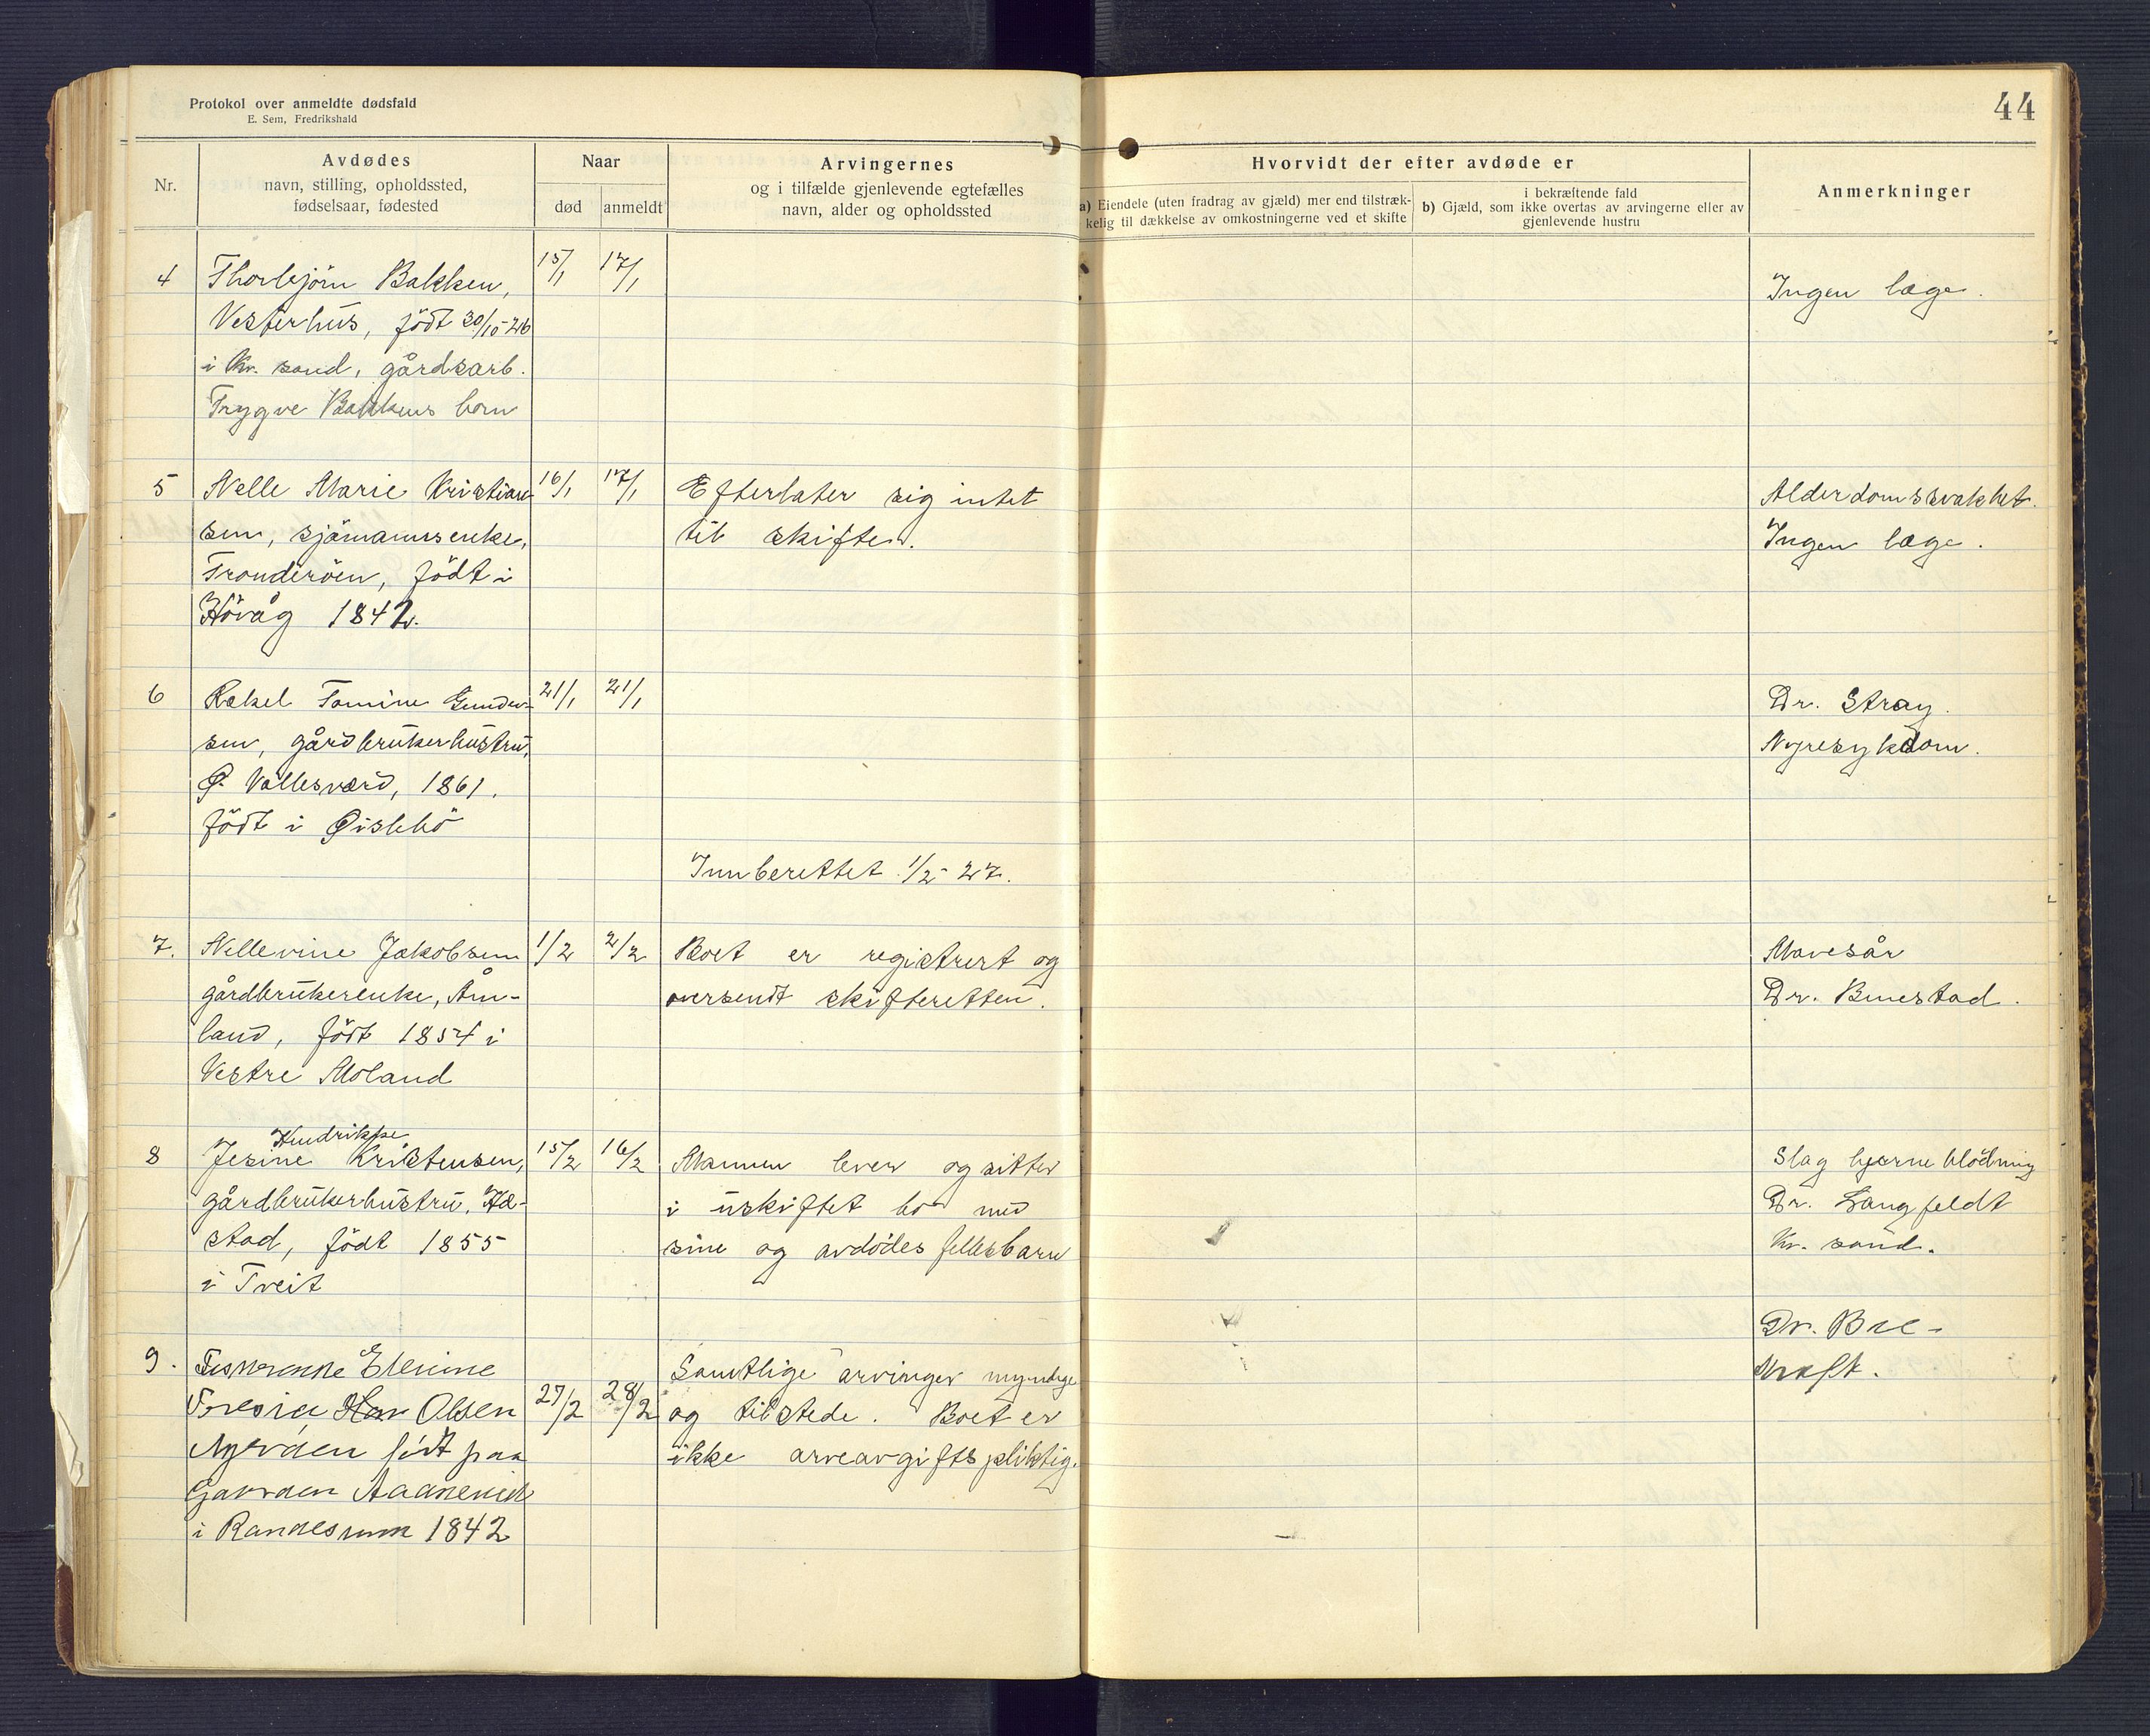 Protokol over anmeldte dødsfald
E. Sem, Fredrikshald
44
Nr.
Avdødes
navn, stilling, opholdssted,
fødselsaar, fødested
Naar
død
anmeldt
Arvingernes
og i tilfælde gjenlevende egtefælles
navn, alder og opholdssted
Hvorvidt der efter avdøde er
a) Eiendele (uten fradrag av gjæld) mer end tilstræk-
kelig til dækkelse av omkostningerne ved et skifte
i bekræftende fald
b) Gjæld, som ikke overtas av arvingerne eller av
gjenlevende hustru
Anmerkninger
4 Thorbjörn Bakken, 15/1 17/1 Ingen læge.
Vesterhus, födt 30/10-26
i Kr. sand, gårdsarb.
Trygve Bakkens barn
5 Nelle Marie Kristian- 16/1 17/1 Efterlater sig intet Alderdomssvakhet.
sen, sjömannsenke, til skifte. Ingen læge.
Tronderöen, födt i
Hövåg 1842.
6 Rakel Tomine Gunder- 21/1 21/1 Dr. Stray.
sen, gårdbrukerhustru, Nyresykdom.
Ø. Vallesværd, 1861.
födt i Øislebö
Innberettet 1/2-27.
7. Nellevine Jakobsen 1/2 2/2 Boet er registrert og Mavesår
gårdbrukerenke, Åm- oversendt skifteretten. Dr. Buestad.
land, födt 1854 i
Vestre Moland
Hendrikke
8 Jesine Kristensen, 15/2 16/2 Mannen lever og sitter Slag hjerneblödning
gårdbrukerhustru, Hæ- i uskiftet bo med Dr. Langfeldt
stad, födt 1855 sine og avdödes fellesbarn Kr. sand.
i Tveit
Dr. Bre-
9. Elenine Samtlige arvinger myndige kraft.
Olsen 27/2 28/2 og tilstede. Boet er
födt paa ikke arveavgiftspliktig.
Gaarden
i Randesund 1842